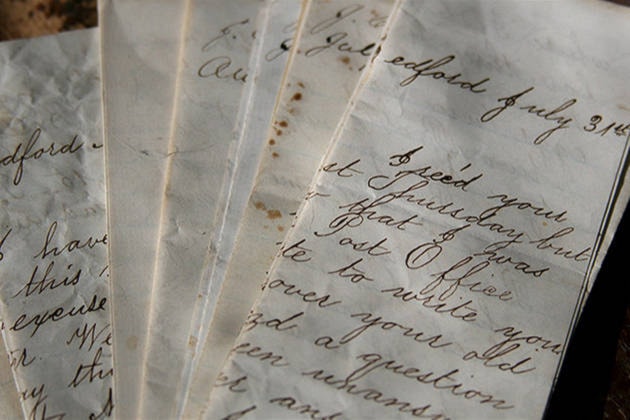 dford
I have
this
excuse
r. We
ay th
Au
Jul
edford July 31st
I rec'd your
st Thursday but
r that I was
Post Office
te to write you
over your old
nd a question
een unansw
er ans